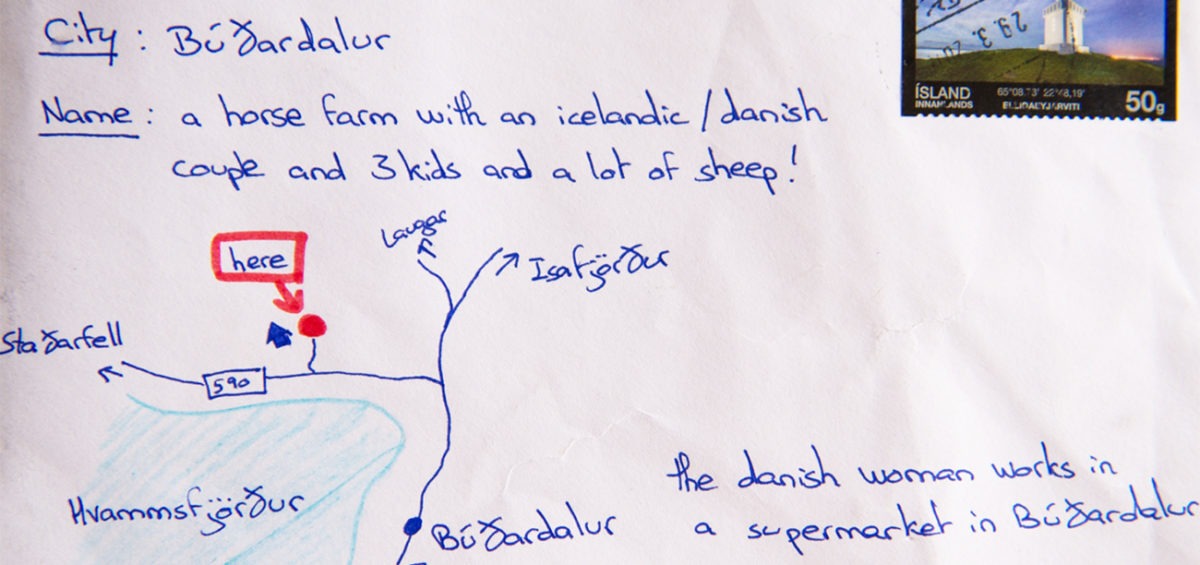 City : Búðardalur
Name : a horse farm with an icelandic / danish
couple and 3 kids and a lot of sheep!
29.3.
ÍSLAND
INNANLANDS
65°08,73' 22°48,19'
ELLIÐAEYJARVITI
50g
Laugar
Isafjörður
here
Staðarfell
590
Hvammsfjörður
Búðardalur
the danish woman works in
a supermarket in Búðardalur